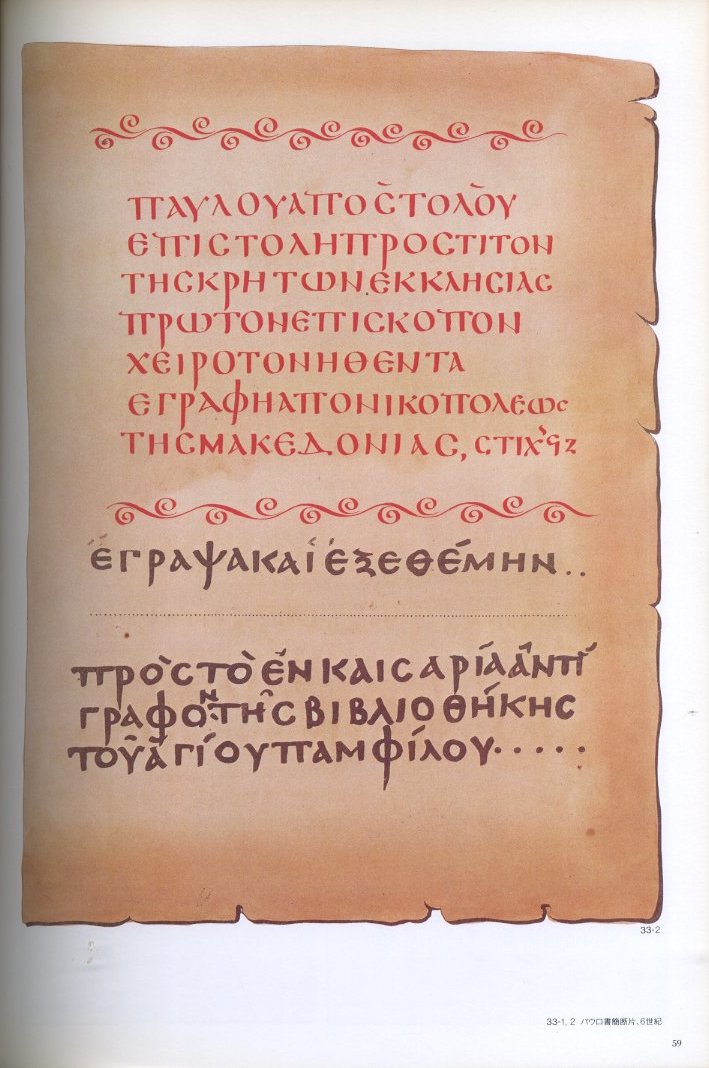 ΠΑΥΛΟΥΑΠΟϹΤΟΛΟΥ
ΕΠΙϹΤΟΛΗΠΡΟϹΤΙΤΟΝ
ΤΗϹΚΡΗΤΩΝ.ΕΚΚΛΗϹΙΑϹ
ΠΡΩΤΟΝΕΠΙϹΚΟΠΟΝ
ΧΕΙΡΟΤΟΝΗΘΕΝΤΑ
ΕΓΡΑΦΗΑΠΟΝΙΚΟΠΟΛΕΩϹ
ΤΗϹΜΑΚΕΔΟΝΙΑϹ, ϹΤΙΧ
ἘΓΡΑΨΑΚΑΙ ἘΞΕΘΈΜΗΝ..
ΠΡῸϹΤῸ ἝΝ ΚΑΙϹΑΡΊΑἈΝΤΊ
ΓΡΑΦΟΝ:ΤΗ͂ϹΒΙΒΛΙΟΘΉΚΗϹ
ΤΟΥ͂ἉΓΊΟΥΠΑΜΦΊΛΟΥ.....
33-2
33-1, 2 パウロ書簡断片、6世紀
59